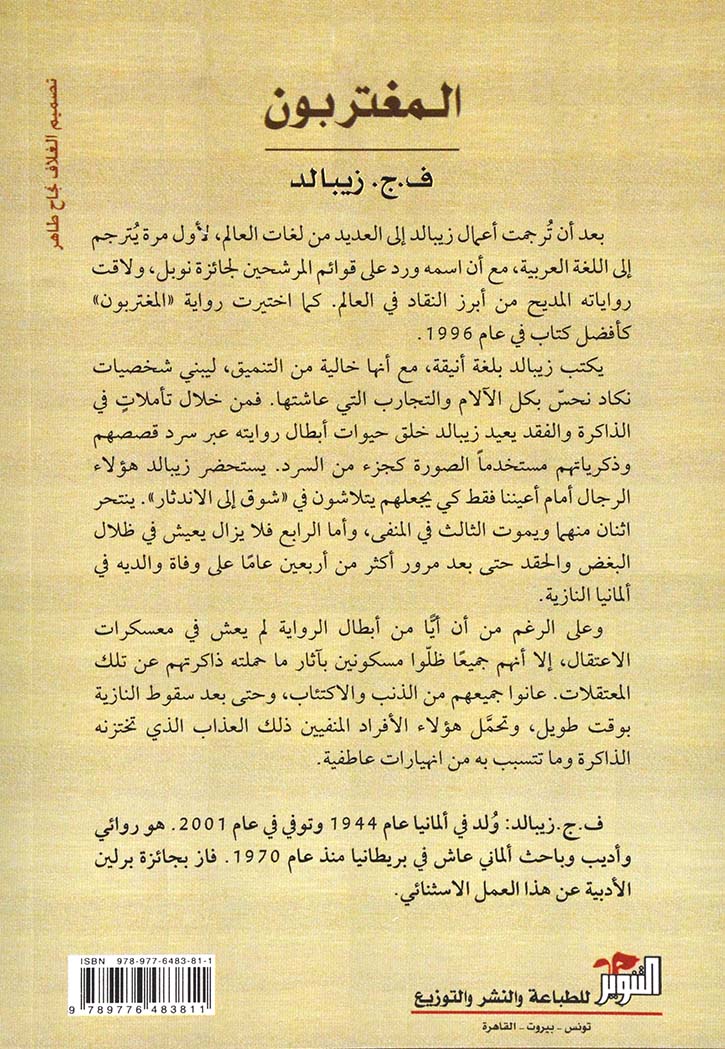 المغتربون
ف.ج. زيبالد
تصميم الغلاف نجاح طاهر
بعد أن تُرجمت أعمال زيبالد إلى العديد من لغات العالم، لأول مرة يُترجم
إلى اللغة العربية، مع أن اسمه ورد على قوائم المرشحين لجائزة نوبل، ولاقت
رواياته المديح من أبرز النقاد في العالم. كما اختيرت رواية «المغتربون»
كأفضل كتاب في عام 1996.
يكتب زيبالد بلغة أنيقة، مع أنها خالية من التنميق، ليبني شخصيات
نكاد نحسّ بكل الآلام والتجارب التي عاشتها. فمن خلال تأملاتٍ في
الذاكرة والفقد يعيد زيبالد خلق حيوات أبطال روايته عبر سرد قصصهم
وذكرياتهم مستخدماً الصورة كجزء من السرد. يستحضر زيبالد هؤلاء
الرجال أمام أعيننا فقط كي يجعلهم يتلاشون في «شوق إلى الاندثار». ينتحر
اثنان منهما ويموت الثالث في المنفى، وأما الرابع فلا يزال يعيش في ظلال
البغض والحقد حتى بعد مرور أكثر من أربعين عامًا على وفاة والديه في
ألمانيا النازية.
وعلى الرغم من أن أيًّا من أبطال الرواية لم يعش في معسكرات
الاعتقال، إلا أنهم جميعًا ظلّوا مسكونين بآثار ما حملته ذاكرتهم عن تلك
المعتقلات. عانوا جميعهم من الذنب والاكتئاب، وحتى بعد سقوط النازية
بوقت طويل، وتحمَّل هؤلاء الأفراد المنفيين ذلك العذاب الذي تختزنه
الذاكرة وما تتسبب به من انهيارات عاطفية.
ف.ج.زيبالد: وُلد في ألمانيا عام 1944 وتوفي في عام 2001. هو روائي
وأديب وباحث ألماني عاش في بريطانيا منذ عام 1970. فاز بجائزة برلين
الأدبية عن هذا العمل الاستثنائي.
ISBN 978-977-6483-81-1
9 789776 483811
التنوير للطباعة والنشر والتوزيع
تونس - بيروت - القاهرة